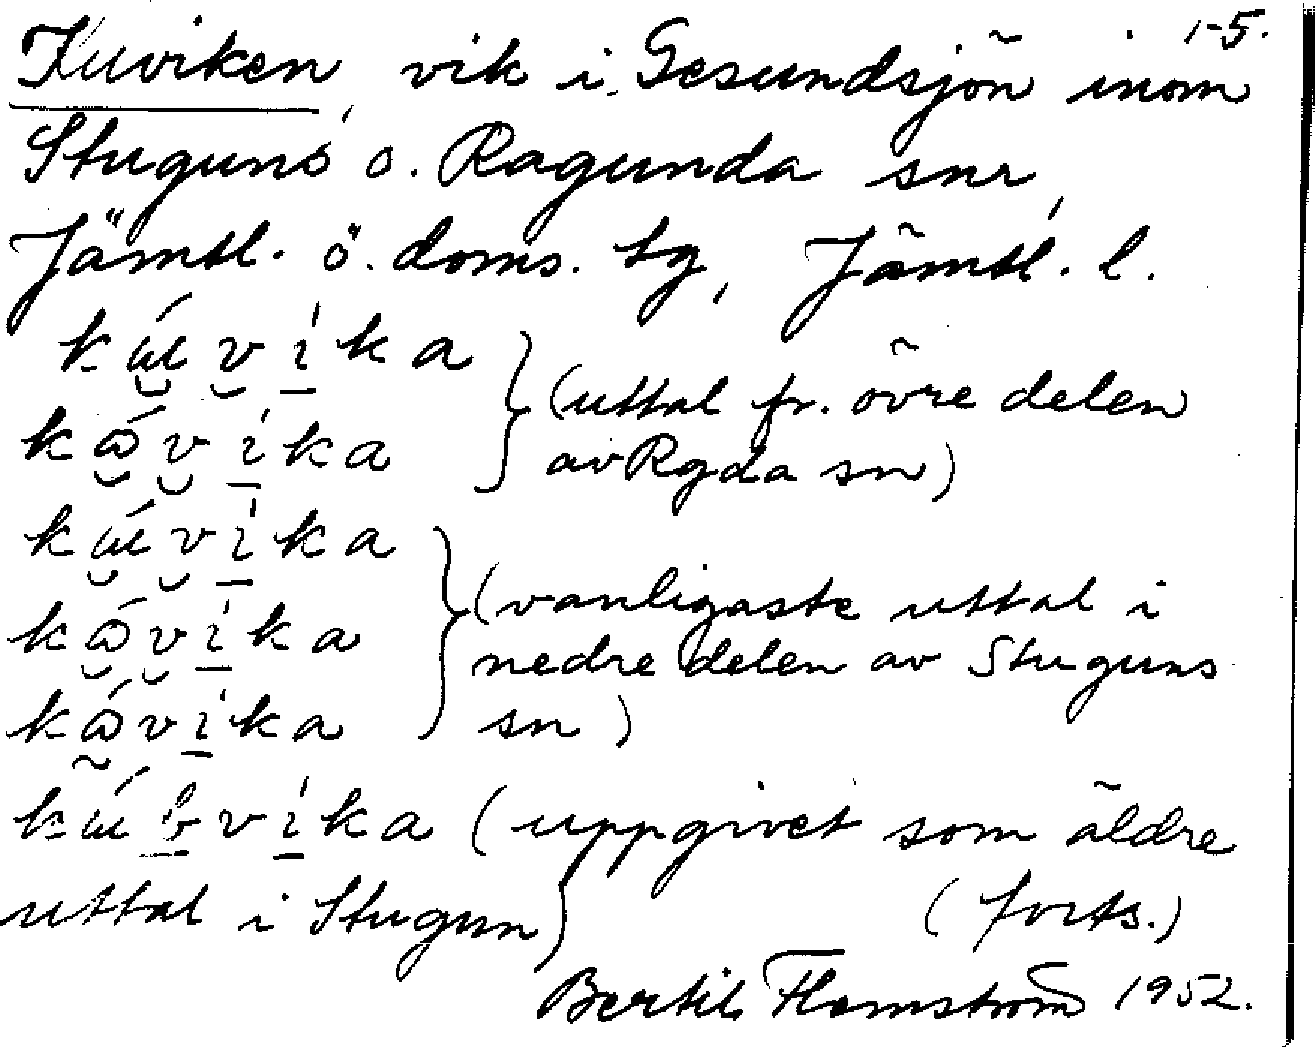 1-5.
Kuviken, vik i Gesundsjön inom
Stuguns o. Ragunda snr,
Jämtl. ö. doms. tg, Jämtl. l.
kúvika
kåvika } (uttal fr. övre delen
av Rgda sn)
kúvika
kåvika } (vanligaste uttal i
nedre delen av Stuguns
kåvika sn)
kúbvika (uppgivet som äldre
uttal i Stugun) (forts.)
Bertil Flemström 1952.